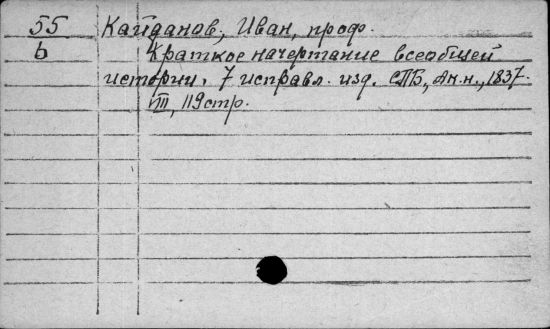 55 Кайданов, Иван, проф.
b Краткое начертание всеобщей
истории. 7 исправл. изд. СПБ, Ак.н., 1837.
VIII, 119 стр.